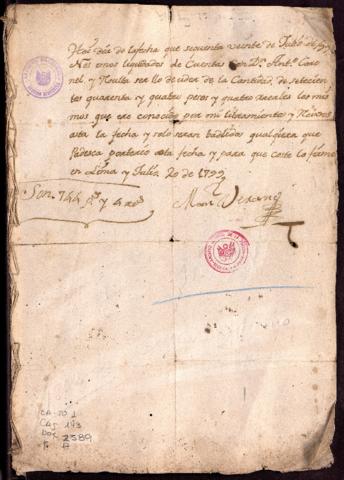 Hoy Dia de la fecha que se quenta veinte de Julio de
Nos emos liquidado de Cuentas con Dn. Anto. Coro
nel y Resulta serlle deudor de la Cantidad de setecien
tos quarenta y quatro pesos y quatro Reales los mis
mos que he conosido por mi Libramiento y
asta la fecha y solo seran balidos qualquiera que
Paresca posterior a esta fecha y para que coste lo firme
en Lima y Julio 20 de 1792
Son 744 ps y 4 rs
Man Verano
CA-JO 1
Caj 173
Doc 2589
f. 8